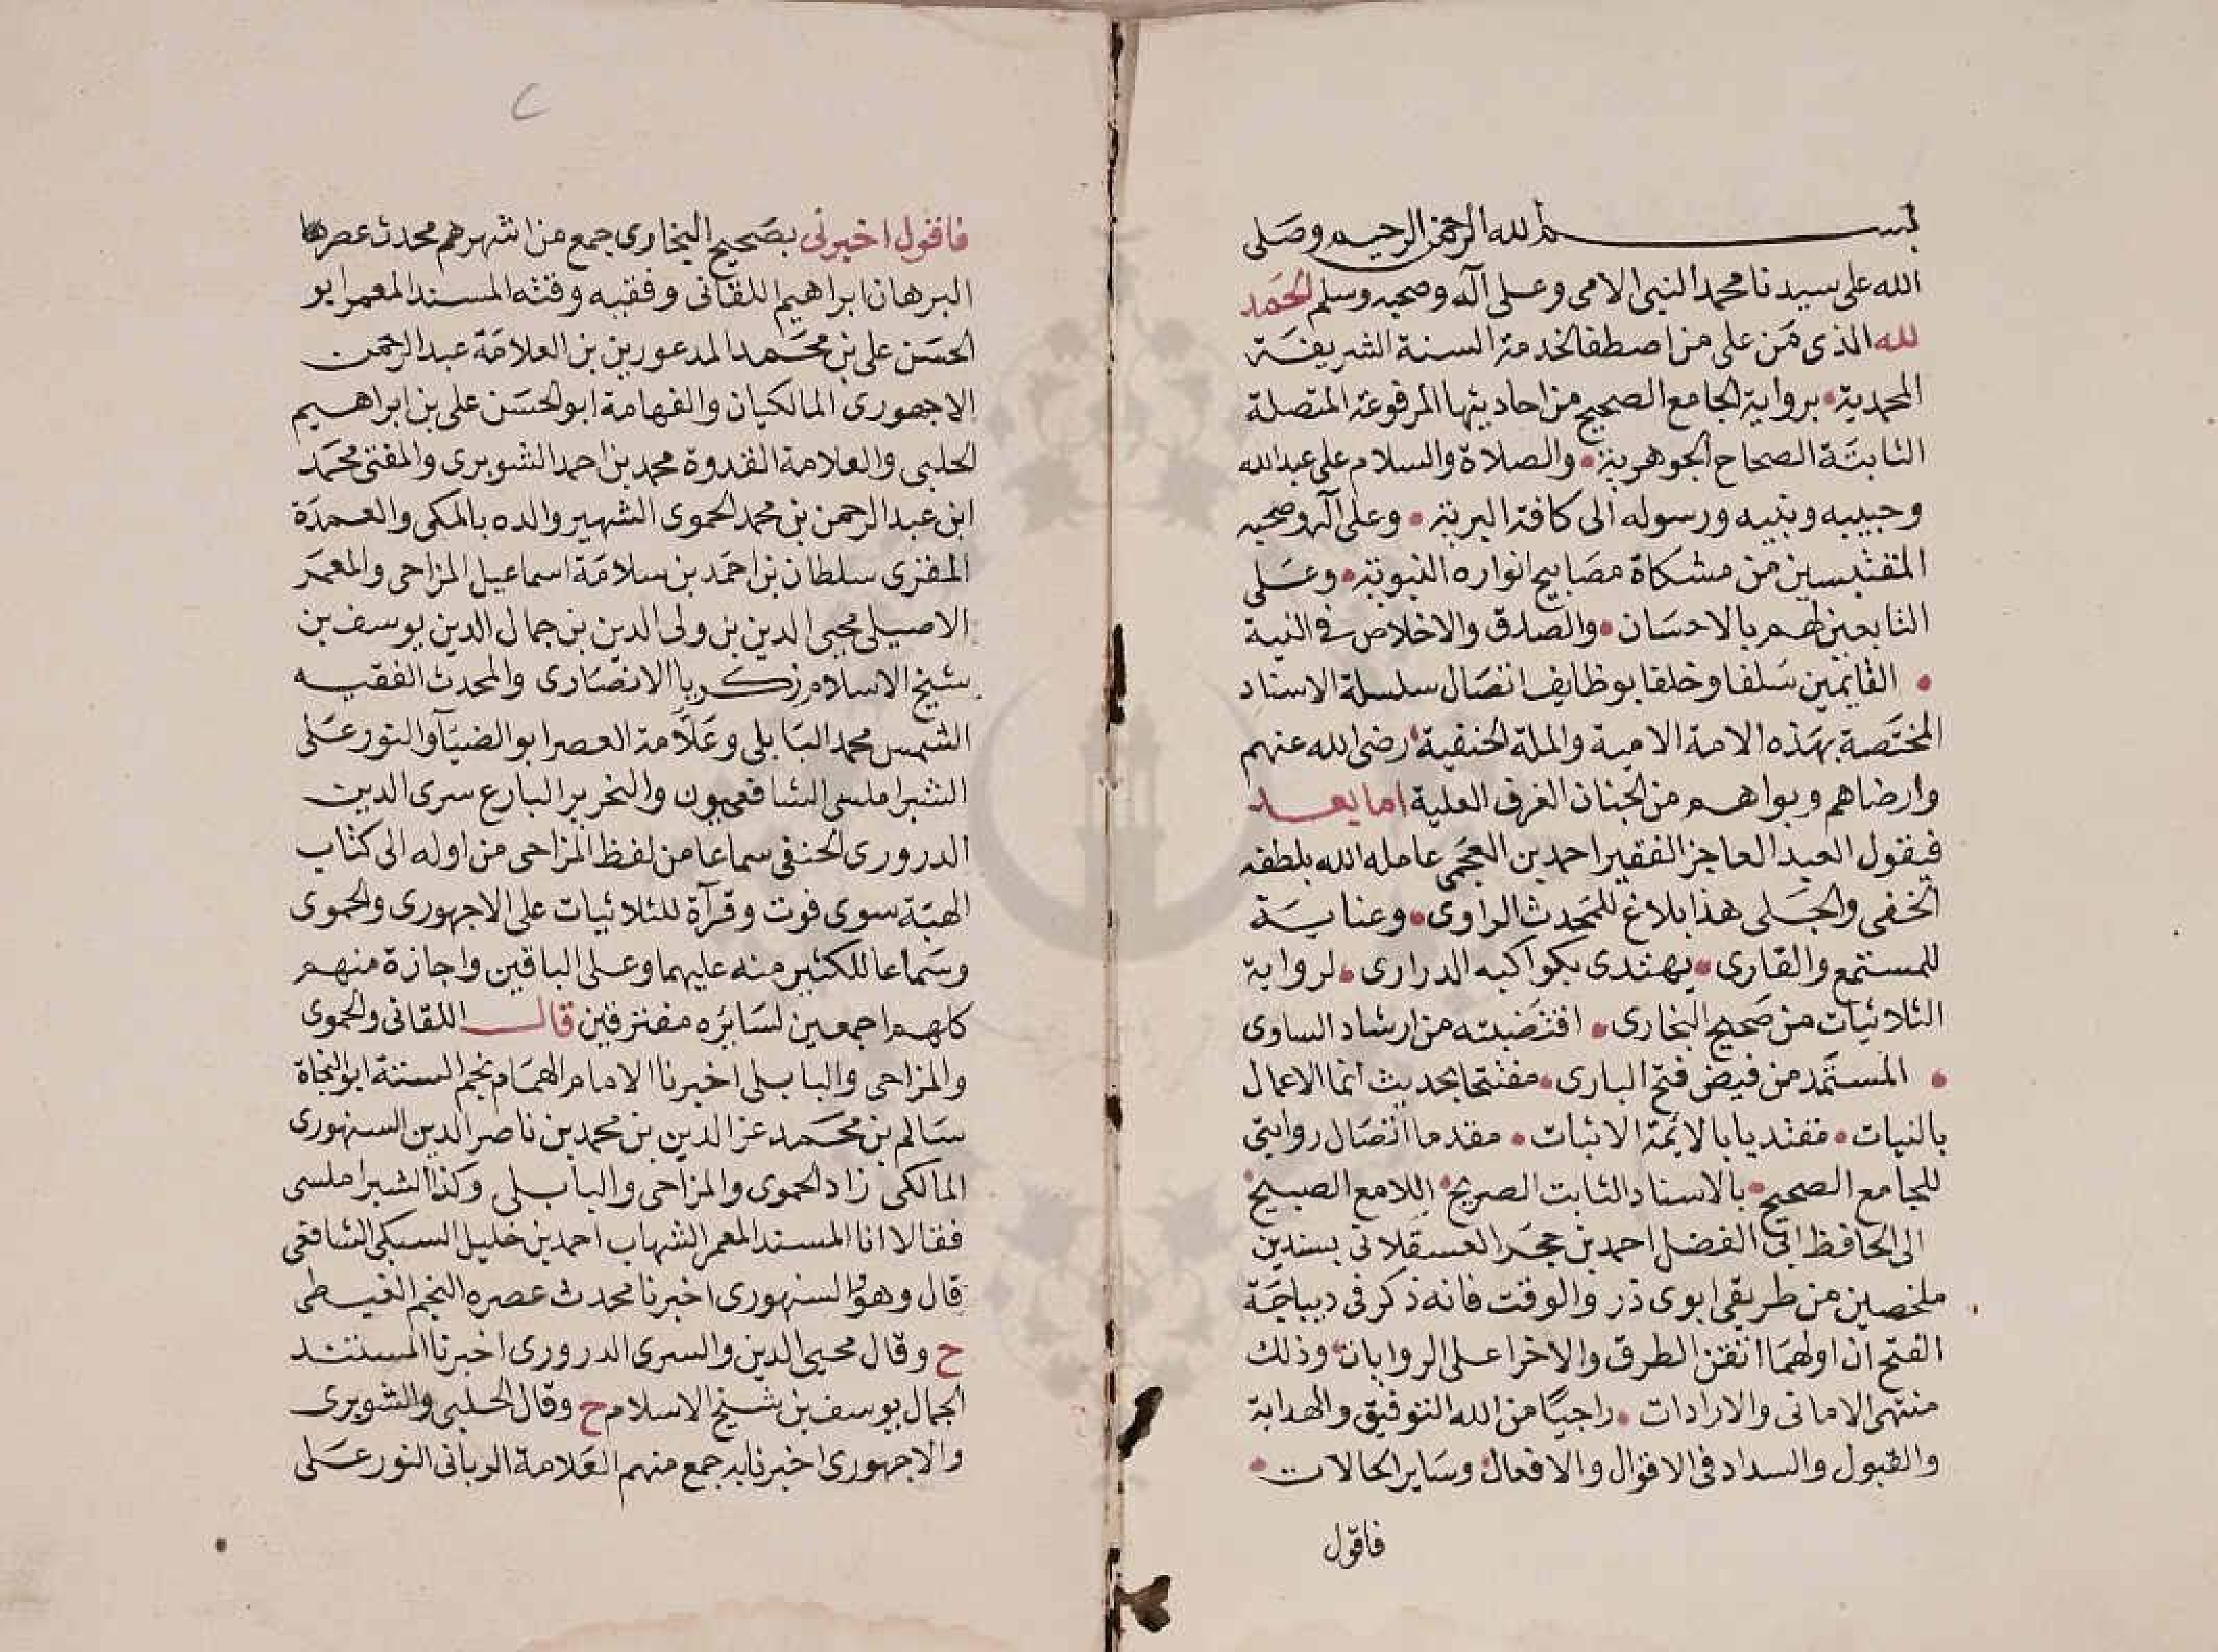 بسم الله الرحمن الرحيم وصلى
الله على سيدنا محمد النبي الامى وعلى آله وصحبه وسلم الحمد
لله الذى من على من اصطفا لخدمة السنة الشريفة
المحمدية • برواية الجامع الصحيح من احاديثها المرفوعة المتصلة
الثابتة الصحاح الجوهرية • والصلاة والسلام على عبد الله
وحبيبه ونبيه ورسوله الى كافة البرية • وعلى آله وصحبه
المقتبسين من مشكاة مصابيح انواره النبوية • وعلى
التابعين لهم بالاحسان • والصدق والاخلاص فى النية
• القايمين سلفا وخلفا بوظايف اتصال سلسلة الاسناد
المختصة بهذه الامة الامية والملة الحنفية • رضى الله عنهم
وارضاهم وبواهم من الجنان الغرف العلية اما بعد
فيقول العبد العاجز الفقير احمد بن العجمى عامله الله بلطفه
الخفى والجلى هذا بلاغ للمحدث الراوى • وعناية
للمستمع والقارى • يهتدى بكواكبه الدرارى • لرواية
الثلاثيات من صحيح البخارى • اقتضبته من ارشاد السارى
• المستمد من فيض فتح البارى • مفتتحا بحديث انما الاعمال
بالنيات • مقتديا بالائمة الاثبات • مقدما اتصال روايتى
للجامع الصحيح • بالاسناد الثابت الصريح • اللامع الصبيح •
الى الحافظ ابى الفضل احمد بن حجر العسقلانى بسندين
ملخصين من طريقى ابوى ذر والوقت فانه ذكر فى ديباجة
الفتح ان اولهما اتقن الطرق والاخر اعلى الروايات • وذلك
منتهى الامانى والارادات • راجيا من الله التوفيق والهداية
والقبول والسداد فى الاقوال والافعال • وساير الحالات •
فاقول
فاقول اخبرنى بصحيح البخارى جمع من اشهرهم محدث عصره
البرهان ابراهيم اللقانى وفقيه وقته المسند المعمر ابو
الحسن على بن محمد المدعو زين بن العلامة عبد الرحمن
الاجهورى المالكيان والفهامة ابو الحسن على بن ابراهيم
الحلبى والعلامة القدوة محمد بن احمد الشوبرى والمفتى محمد
ابن عبد الرحمن بن محمد الحموى الشهير والده بالمكى والعمدة
المقرى سلطان بن احمد بن سلامة اسماعيل المزاحى والمعمر
الاصيلى محيى الدين بن ولى الدين بن جمال الدين يوسف بن
شيخ الاسلام زكريا الانصارى والمحدث الفقيه
الشمس محمد البابلى وعلامة العصر ابو الضيآ والنور على
الشبراملسى الشافعيون والنحرير البارع سرى الدين
الدرورى الحنفى سماعا من لفظ المزاحى من اوله الى كتاب
الهبة سوى فوت وقرآة للثلاثيات على الاجهورى والحموى
وسماعا للكثير منه عليهما وعلى الباقين واجازة منهم
كلهم اجمعين لسايره مفترقين قال اللقانى والحموى
والمزاحى والبابلى اخبرنا الامام الهمام نجم السنة ابو النجاة
سالم بن محمد عز الدين بن محمد بن ناصر الدين السنهورى
المالكى زاد الحموى والمزاحى والبابلى وكذا الشبراملسى
فقالا انا المسند المعمر الشهاب احمد بن خليل السبكى الشافعى
قال وهو السنهورى اخبرنا محدث عصره النجم الغيطى
ح وقال محيى الدين والسرى الدرورى اخبرنا المسند
الجمال يوسف بن شيخ الاسلام ح وقال الحلبى والشوبرى
والاجهورى اخبرنا به جمع منهم العلامة الربانى النور على